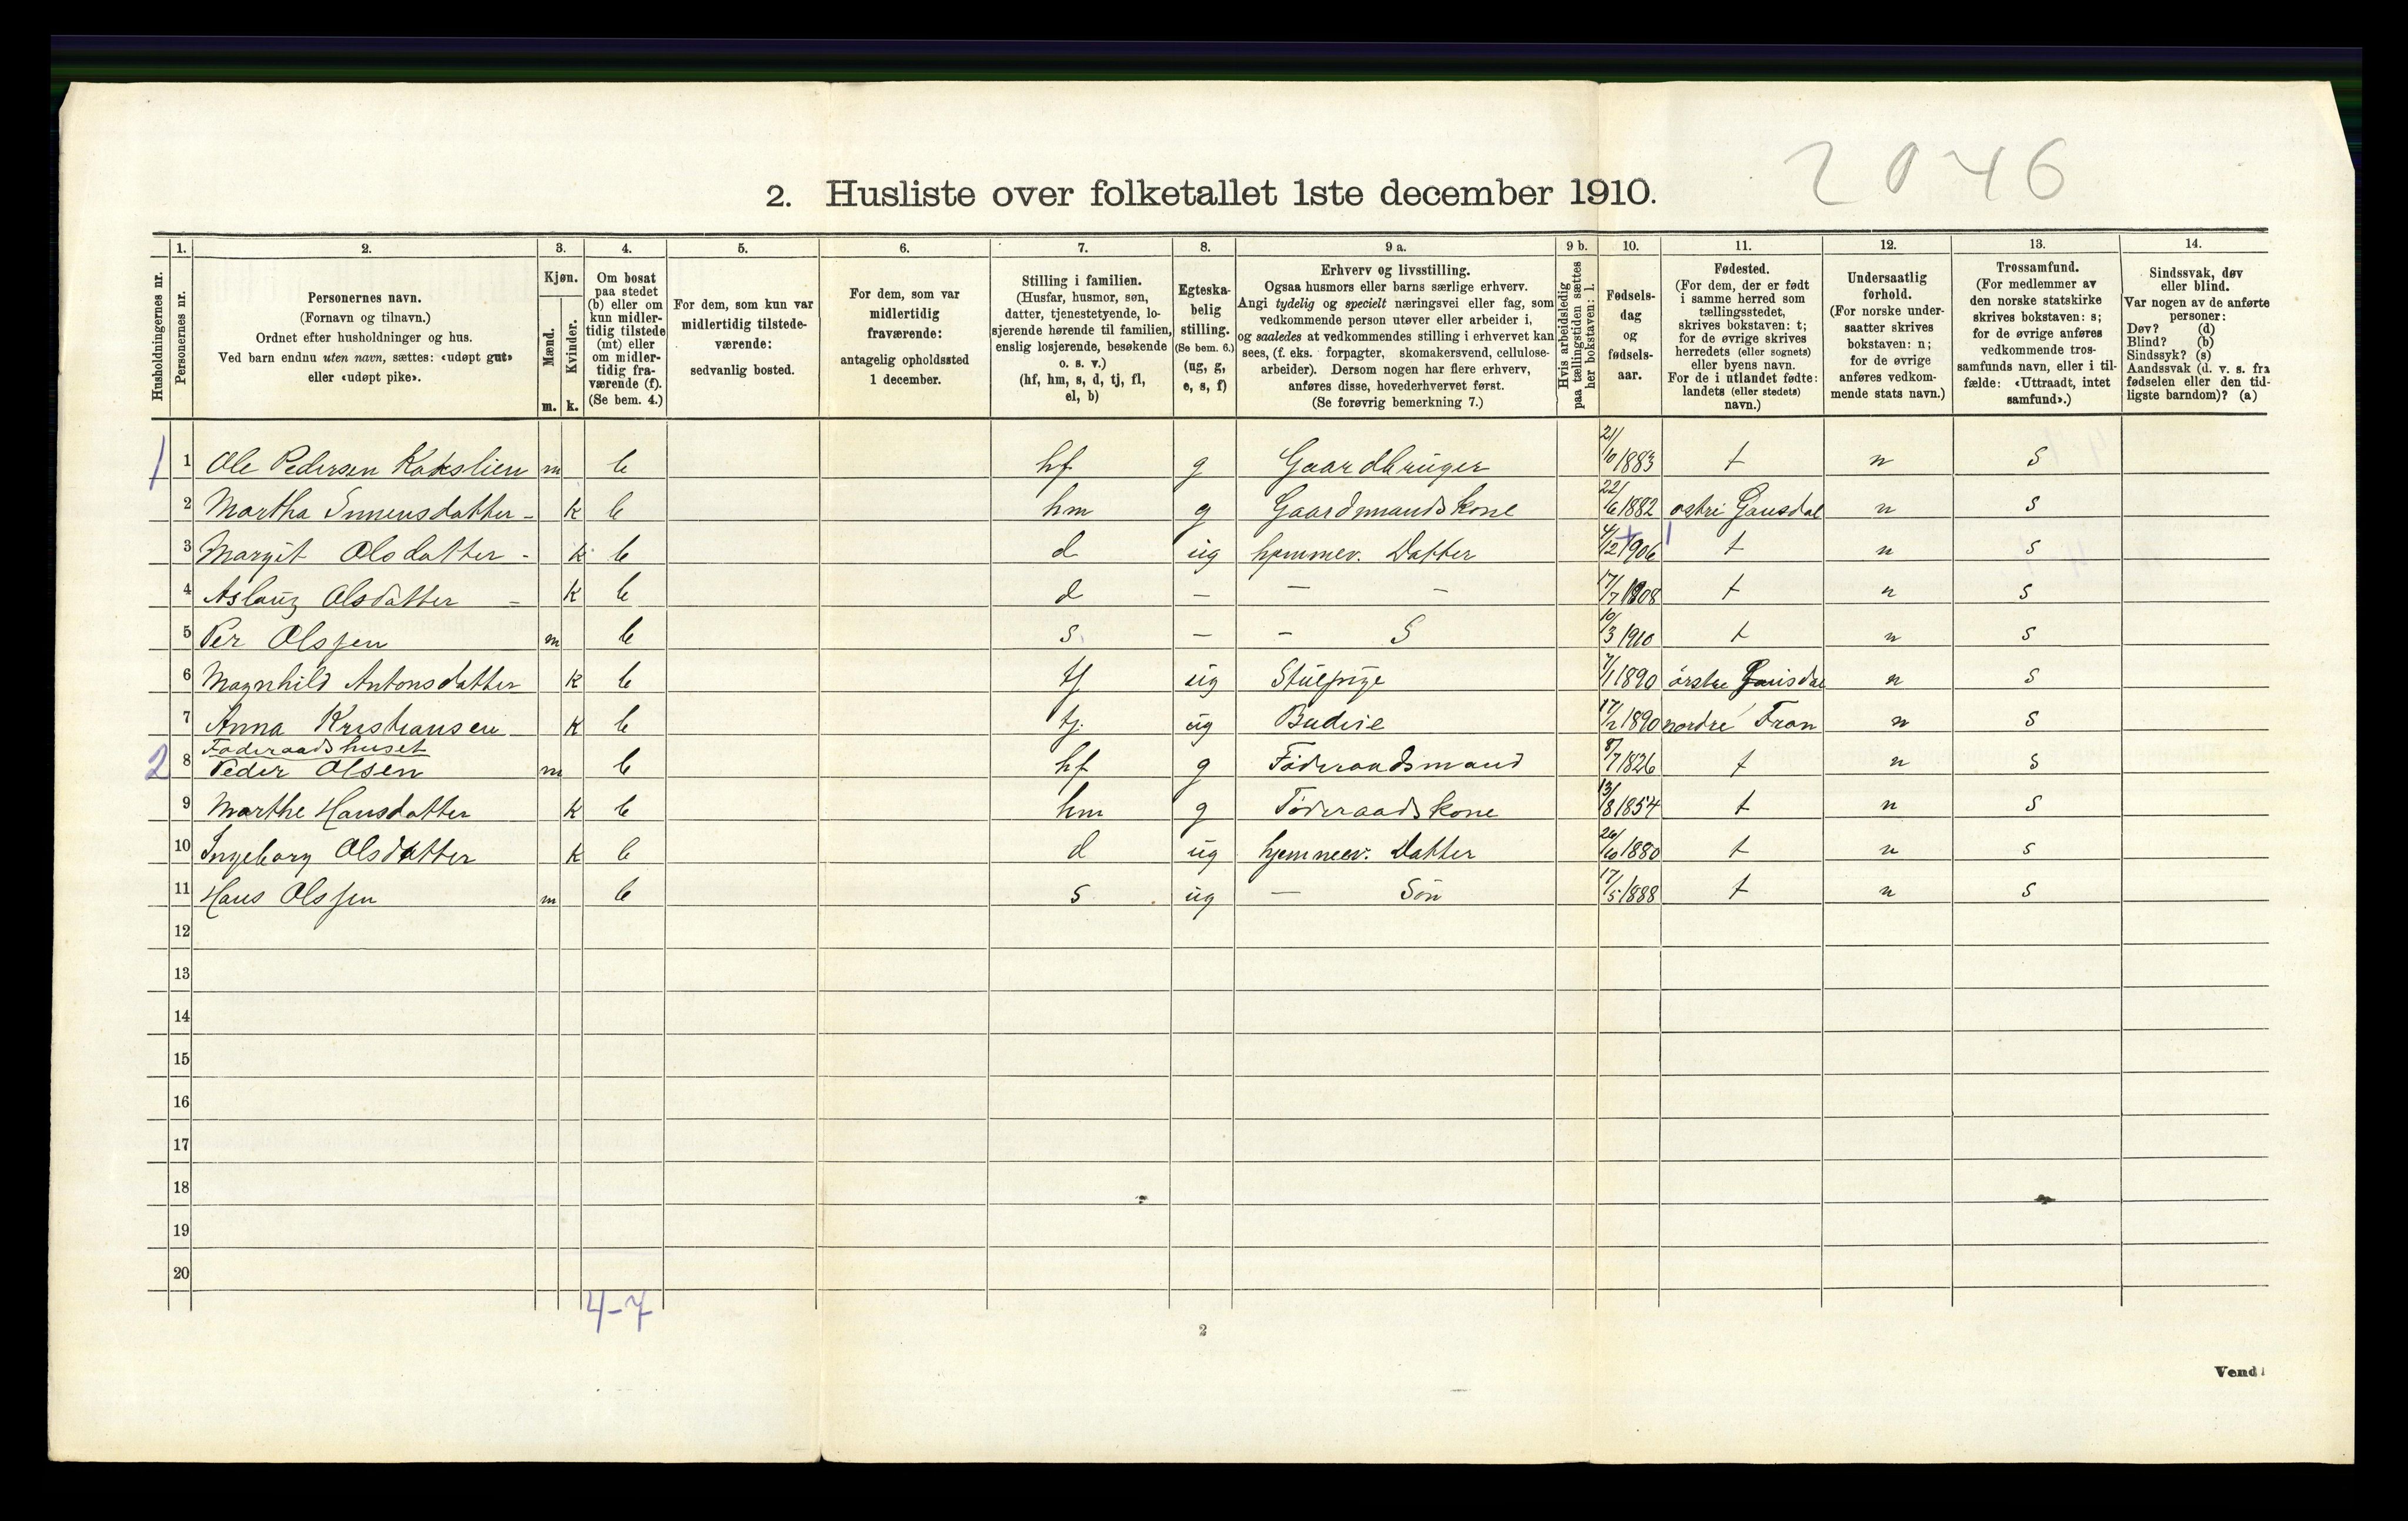 2046
2. Husliste over folketallet 1ste december 1910.
Husholdningernes nr.
1. Personernes nr.
2. Personernes navn. (Fornavn og tilnavn.) Ordnet efter husholdninger og hus. Ved barn endnu uten navn, sættes: «udøpt gut» eller «udøpt pike».
3. Kjøn. Mænd. m. Kvinder. k.
4. Om bosat paa stedet (b) eller om kun midlertidig tilstede (mt) eller om midlertidig fraværende (f). (Se bem. 4.)
5. For dem, som kun var midlertidig tilstedeværende: sedvanlig bosted.
6. For dem, som var midlertidig fraværende: antagelig opholdssted 1 december.
7. Stilling i familien. (Husfar, husmor, søn, datter, tjenestetyende, losjerende hørende til familien, enslig losjerende, besøkende o. s. v.) (hf, hm, s, d, tj, fl, el, b)
8. Egteskabelig stilling. (Se bem. 6.) (ug, g, e, s, f)
9 a. Erhverv og livsstilling. Ogsaa husmors eller barns særlige erhverv. Angi tydelig og specielt næringsvei eller fag, som vedkommende person utøver eller arbeider i, og saaledes at vedkommendes stilling i erhvervet kan sees, (f. eks. forpagter, skomakersvend, cellulosearbeider). Dersom nogen har flere erhverv, anføres disse, hovederhvervet først. (Se forøvrig bemerkning 7.)
9 b. Hvis arbeidsledig paa tællingstiden sættes her bokstaven: l.
10. Fødselsdag og fødselsaar.
11. Fødested. (For dem, der er født i samme herred som tællingsstedet, skrives bokstaven: t; for de øvrige skrives herredets (eller sognets) eller byens navn. For de i utlandet fødte: landets (eller stedets) navn.)
12. Undersaatlig forhold. (For norske undersaatter skrives bokstaven: n; for de øvrige anføres vedkommende stats navn.)
13. Trossamfund. (For medlemmer av den norske statskirke skrives bokstaven: s; for de øvrige anføres vedkommende trossamfunds navn, eller i tilfælde: «Uttraadt, intet samfund».)
14. Sindssvak, døv eller blind. Var nogen av de anførte personer: Døv? (d) Blind? (b) Sindssyk? (s) Aandssvak (d. v. s. fra fødselen eller den tidligste barndom)? (a)
1 1 Ole Pedersen m b hf g Gaardbruger 21/10 1883 t n s
2 Martha - k b hm g Gaardmandskone 22/6 1882 østre Gausdal n s
3 Margit Olsdatter - k b d ug hjemmev. Datter 4/12 1906 t n s
4 Aslaug Olsdatter - k b d - - - 17/7 1908 t n s
5 Per Olssen m b s - - S 10/3 1910 t n s
6 Magnhild Antonsdatter k b tj ug Stuepige 7/1 1890 østre Gausdal n s
7 Anna Kristiansen k b tj ug Budeie 17/2 1890 nordre Fron n s
Føderaadshuset
2 8 Peder Olsen m b hf g Føderaadsmand 8/7 1826 t n s
9 Marthe Hansdatter k b hm g Føderaadskone 13/8 1854 t n s
10 Ingeborg Olsdatter k b d ug hjemmev. Datter 26/10 1880 t n s
11 Hans Olssen m b s ug - Søn 17/5 1888 t n s
12
13
14
15
16
17
18
19
20
4-7
2
Vend!